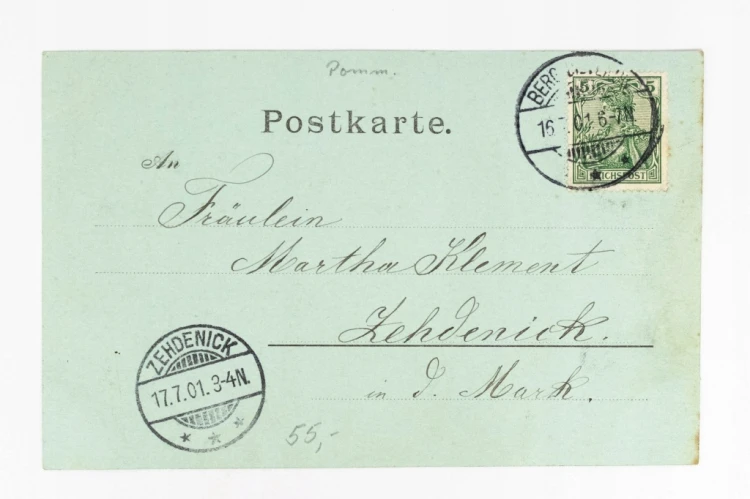 Pomm.
5 5
16. 01 6-7N.
REICHSPOST
Postkarte.
An
Fräulein
Martha Klement
Zehdenick.
in d. Mark.
ZEHDENICK
17.7.01.3-4N.
* * *
55,-